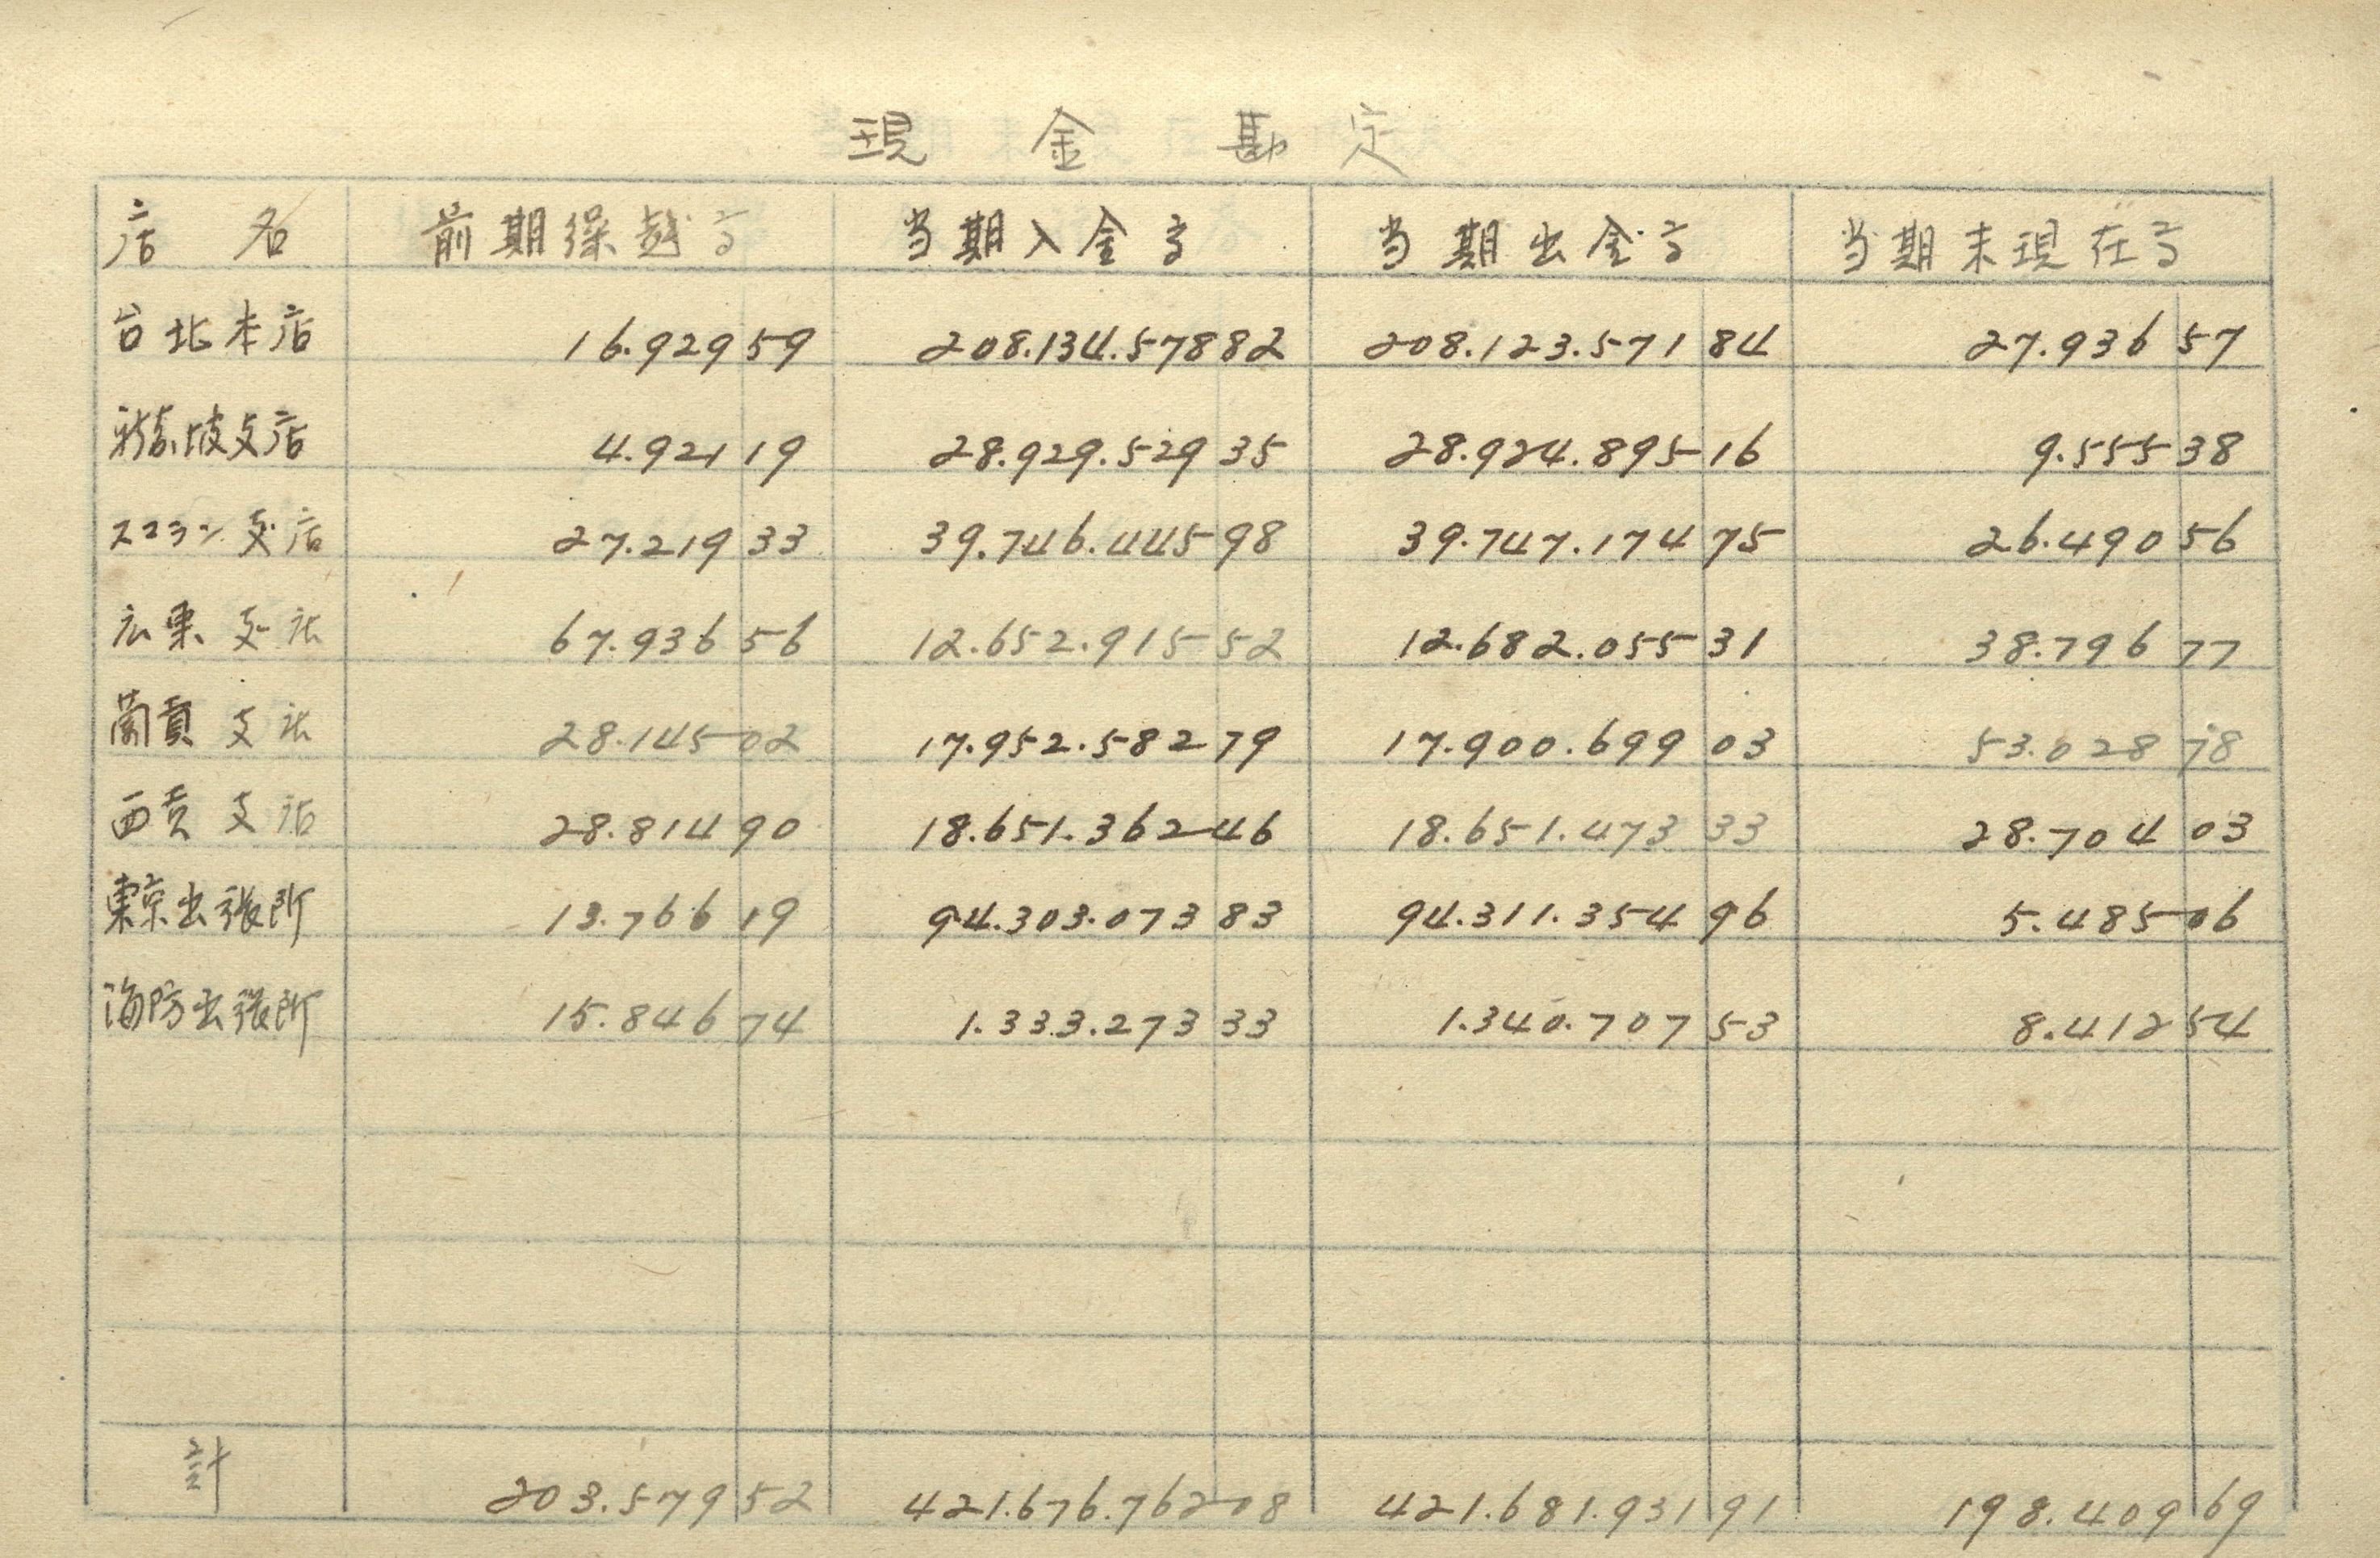 現金勘定
店名 前期繰越高 当期入金高 当期出金高 当期末現在高
台北本店 16.929 59 208.134.578 82 208.123.571 84 27.936 57
新嘉坡支店 4.921 19 28.929.529 35 28.924.895 16 9.555 38
スマラン支店 27.219 33 39.746.445 98 39.747.174 75 26.490 56
広東支店 67.936 56 12.652.915 52 12.682.055 31 38.796 77
蘭貢支店 28.145 02 17.952.582 79 17.900.699 03 53.028 78
西貢支店 28.814 90 18.651.362 46 18.651.473 33 28.704 03
東京出張所 13.766 19 94.303.073 83 94.311.354 96 5.485 06
海防出張所 15.846 74 1.333.273 33 1.340.707 53 8.412 54
計 203.579 52 421.676.762 08 421.681.931 91 198.409 69